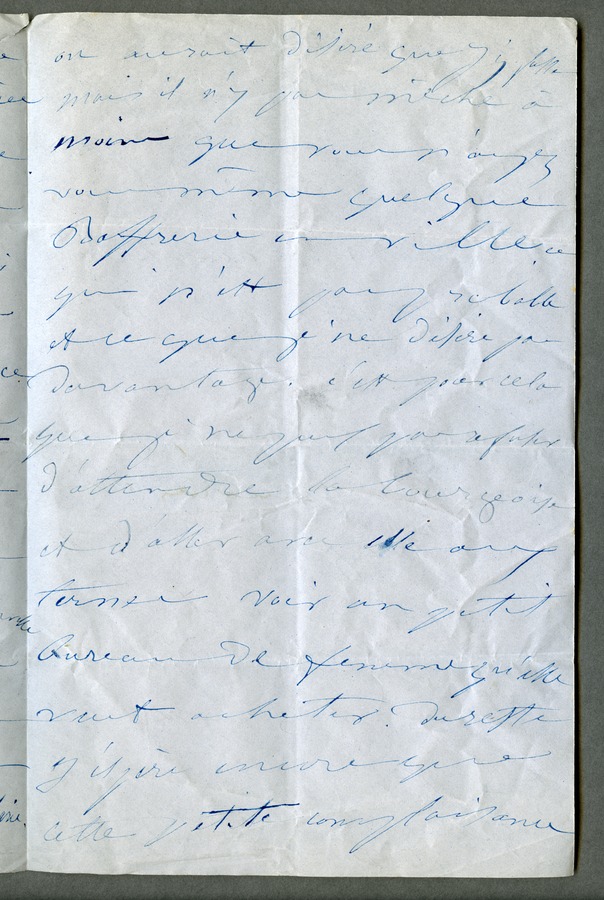 on auroit désiré que j'y
mais il n'y pas mèche à
moins que vous n'ayez
vous même quelque
Bâffrerie en ville ce
qui n'est pas probable
et ce que je ne désire pas
davantage. c'est pour cela
que je ne puis pas refuser
d'attendre la bourgeoise
et d'aller avec elle aux
ternes voir un petit
bureau de femme qu'elle
veut acheter. du reste
j'espère encore que
cette petite complaisance